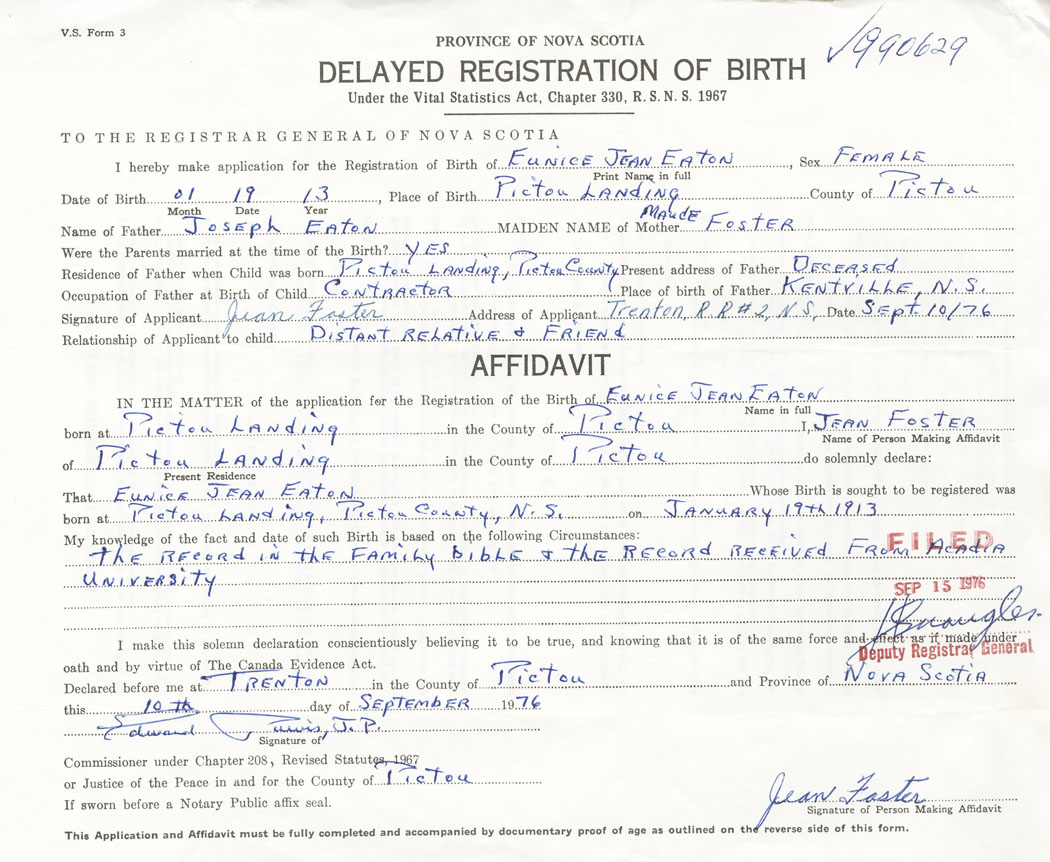 V.S. Form 3
PROVINCE OF NOVA SCOTIA
√990629
DELAYED REGISTRATION OF BIRTH
Under the Vital Statistics Act, Chapter 330, R. S. N. S. 1967
TO THE REGISTRAR GENERAL OF NOVA SCOTIA
I hereby make application for the Registration of Birth of EUNICE JEAN EATON, Sex FEMALE
Print Name in full
Date of Birth 01 19 13, Place of Birth PICTOU LANDING County of PICTOU
Month Date Year
Name of Father JOSEPH EATON MAIDEN NAME of Mother MAUDE FOSTER
Were the Parents married at the time of the Birth? YES
Residence of Father when Child was born PICTOU LANDING, PICTOU COUNTY Present address of Father DECEASED
Occupation of Father at Birth of Child CONTRACTOR Place of birth of Father KENTVILLE, N.S.
Signature of Applicant Jean Foster Address of Applicant Trenton, R.R#2, N.S, Date SEPT. 10/76
Relationship of Applicant to child DISTANT RELATIVE & FRIEND
AFFIDAVIT
IN THE MATTER of the application for the Registration of the Birth of EUNICE JEAN EATON
Name in full
born at PICTOU LANDING in the County of PICTOU I, JEAN FOSTER
Name of Person Making Affidavit
of PICTOU LANDING in the County of PICTOU do solemnly declare:
Present Residence
That EUNICE JEAN EATON Whose Birth is sought to be registered was
born at PICTOU LANDING, PICTOU COUNTY, N.S. on JANUARY 19TH 1913
My knowledge of the fact and date of such Birth is based on the following Circumstances:
THE RECORD IN THE FAMILY BIBLE & THE RECORD RECEIVED FROM ACADIA
FILED
UNIVERSITY
SEP 15 1976
I make this solemn declaration conscientiously believing it to be true, and knowing that it is of the same force and effect as if made under
Deputy Registrar General
oath and by virtue of The Canada Evidence Act.
Declared before me at TRENTON in the County of PICTOU and Province of NOVA SCOTIA
this 10th day of SEPTEMBER 1976
Edward J.P.
Signature of
Commissioner under Chapter 208, Revised Statutes, 1967
or Justice of the Peace in and for the County of PICTOU
If sworn before a Notary Public affix seal.
Jean Foster
Signature of Person Making Affidavit
This Application and Affidavit must be fully completed and accompanied by documentary proof of age as outlined on the reverse side of this form.